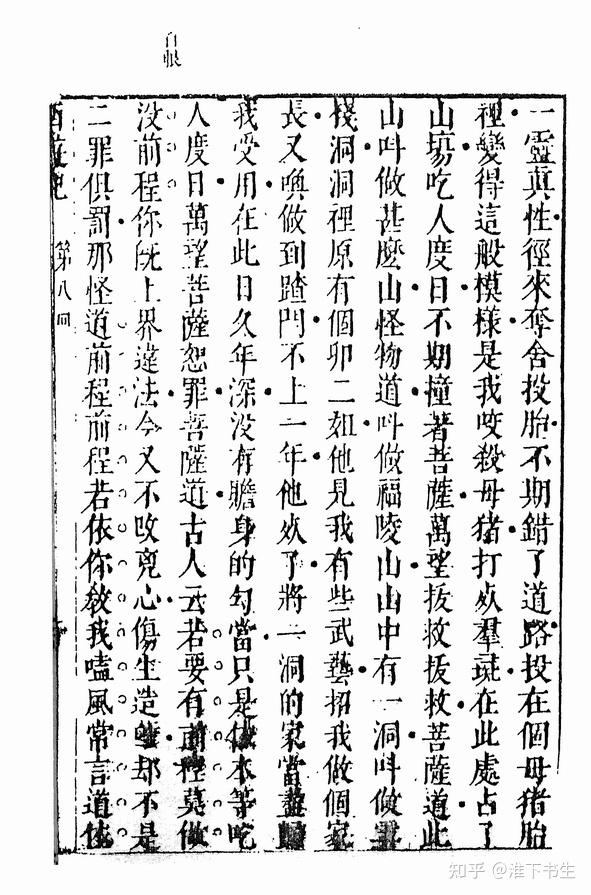 一靈真性徑來奪舍投胎不期錯了道路投在個母猪胎
裡變得這般模樣是我咬殺母猪打死羣彘在此處占了
山塲吃人度日不期撞著菩薩萬望拔救拔救菩薩道此
山呌做甚麼山怪物道呌做福陵山山中有一洞呌做雲
棧洞洞裡原有個卯二姐他見我有些武藝招我做個家
長又喚做到蹅門不上一年他死了將一洞的家當盡歸
我受用在此日久年深没有贍身的勾當只是依本等吃
人度日萬望菩薩恕罪菩薩道古人云若要有前程莫做
没前程你旣上界違法今又不改兇心傷生造孽却不是
二罪俱罰那怪道前程前程若依你教我嗑風常言道依
西遊記 第八回
知乎 @淮下书生